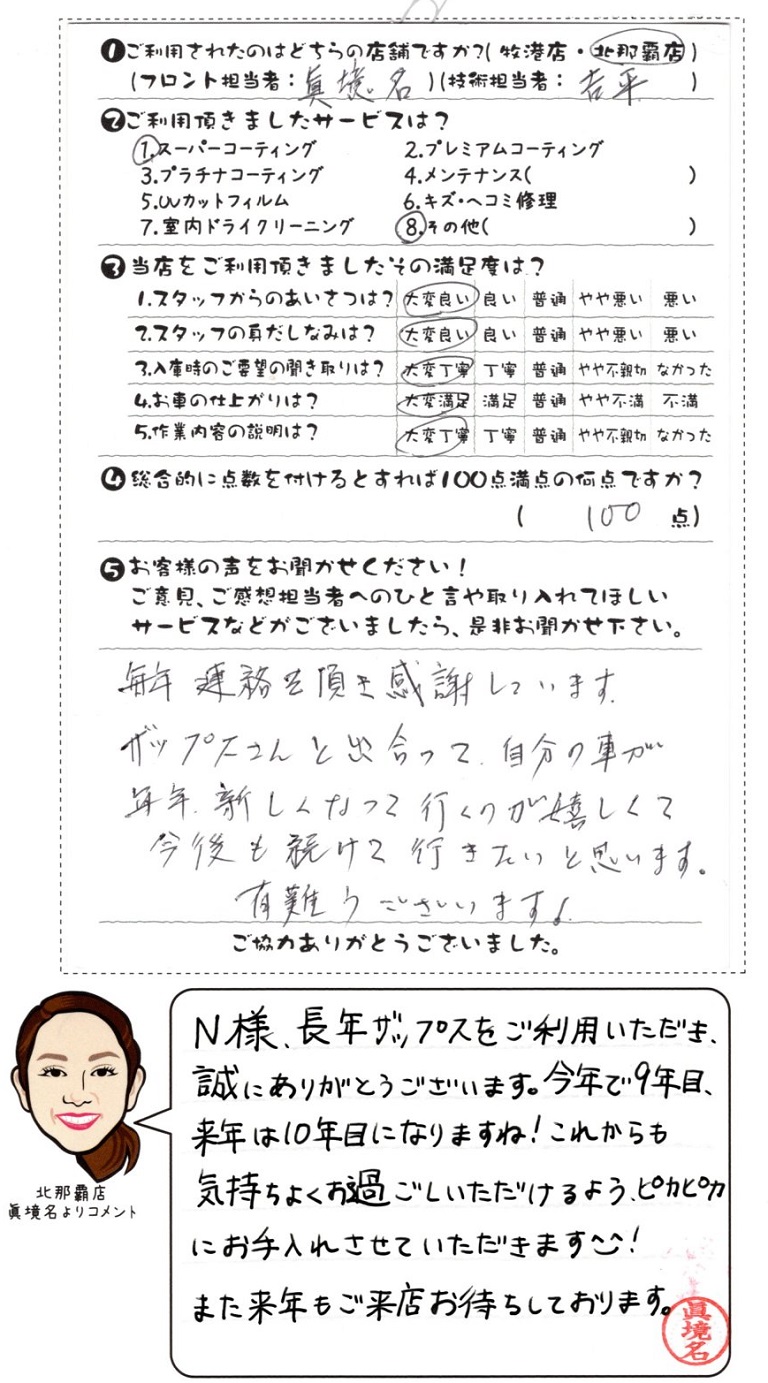 ❶ご利用されたのはどちらの店舗ですか?( 牧港店・北那覇店 )
(フロント担当者: 眞境名 )(技術担当者: 吉平 )
❷ご利用頂きましたサービスは?
1.スーパーコーティング 2.プレミアムコーティング
3.プラチナコーティング 4.メンテナンス( )
5.UVカットフィルム 6.キズ・ヘコミ修理
7.室内ドライクリーニング 8.その他( )
❸当店をご利用頂きましたその満足度は?
1.スタッフからのあいさつは? 大変良い 良い 普通 やや悪い 悪い
2.スタッフの身だしなみは? 大変良い 良い 普通 やや悪い 悪い
3.入庫時のご要望の聞き取りは? 大変丁寧 丁寧 普通 やや不親切 なかった
4.お車の仕上がりは? 大変満足 満足 普通 やや不満 不満
5.作業内容の説明は? 大変丁寧 丁寧 普通 やや不親切 なかった
❹総合的に点数を付けるとすれば100点満点の何点ですか?
( 100 点)
❺お客様の声をお聞かせください!
ご意見、ご感想担当者へのひと言や取り入れてほしい
サービスなどがございましたら、是非お聞かせ下さい。
毎年 連絡を頂き感謝しています。
ザップスさんと出合って、自分の車が
年年、新しくなって行くのが嬉しくて
今後も続けて行きたいと思います。
有難うございます!
ご協力ありがとうございました。
N様、長年ザップスをご利用いただき、
誠にありがとうございます。今年で9年目、
来年は10年目になりますね!これからも
気持ちよくお過ごしいただけるよう、ピカピカ
にお手入れさせていただきます!
また来年もご来店お待ちしております。
眞境名
北那覇店
眞境名よりコメント